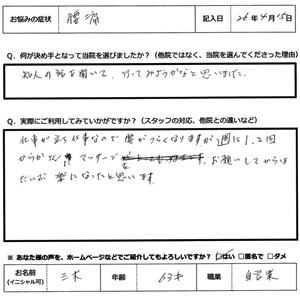 お悩みの症状 腰痛 記入日 26年4月15日
Q. 何が決め手となって当院を選びましたか？（他院ではなく、当院を選んでくださった理由）
知人の話を聞いて、行ってみようかなと思いました。
Q. 実際にご利用してみていかがですか？（スタッフの対応、他院との違いなど）
仕事が立ち仕事なので腰がつらくなりますが週に1,2回
マッサージ お願いしてからは
だいぶ楽になったと思います
※ あなた様の声を、ホームページなどでご紹介してもよろしいですか？ ☑はい □匿名で □ダメ
お名前 三木 年齢 63才 職業 自営業
(イニシャル可)